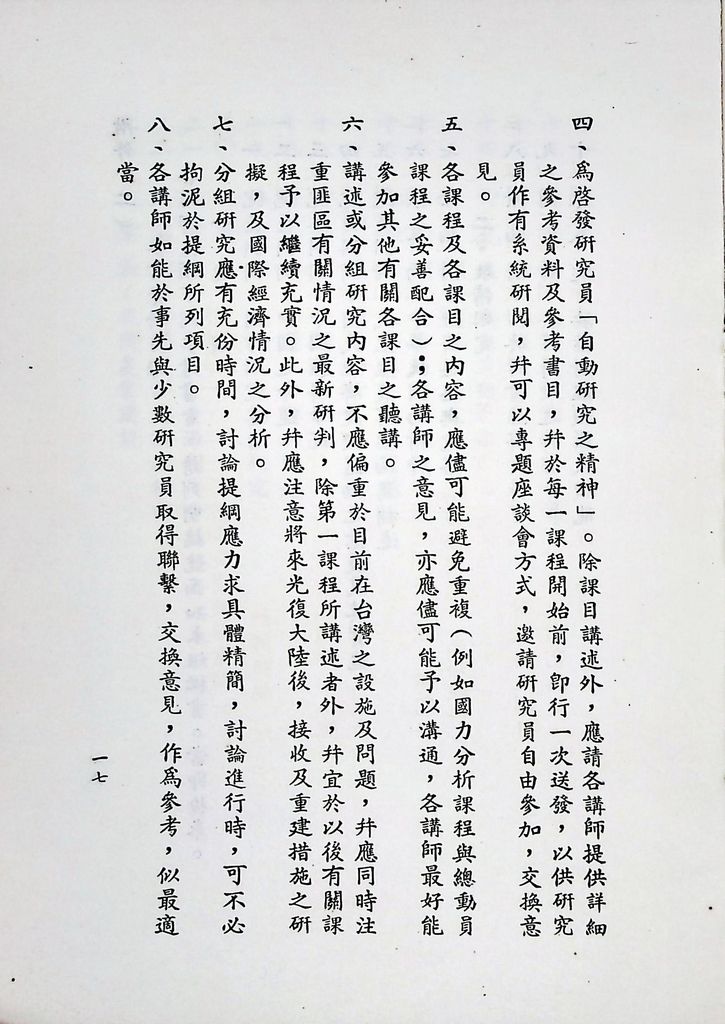 四、爲啓發研究員「自動研究之精神」。除課目講述外，應請各講師提供詳細
之參考資料及參考書目，幷於每一課程開始前，卽行一次送發，以供研究
員作有系統研閱，幷可以專題座談會方式，邀請研究員自由參加，交換意
見。
五、各課程及各課目之內容，應儘可能避免重複（例如國力分析課程與總動員
課程之妥善配合）；各講師之意見，亦應儘可能予以溝通，各講師最好能
參加其他有關各課目之聽講。
六、講述或分組研究內容，不應偏重於目前在台灣之設施及問題，幷應同時注
重匪區有關情況之最新研判，除第一課程所講述者外，幷宜於以後有關課
程予以繼續充實。此外，幷應注意將來光復大陸後，接收及重建措施之研
擬，及國際經濟情況之分析。
七、分組研究應有充份時間，討論提綱應力求具體精簡，討論進行時，可不必
拘泥於提綱所列項目。
八、各講師如能於事先與少數研究員取得聯繫，交換意見，作爲參考，似最適
當。
一七